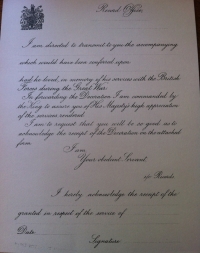 Record Office,
I am directed to transmit to you the accompanying
which would have been conferred upon
had he lived, in memory of his services with the British
Forces during the Great War.
In forwarding the Decoration I am commanded by
the King to assure you of His Majesty's high appreciation
of the services rendered.
I am to request that you will be so good as to
acknowledge the receipt of the Decoration on the attached
form.
I am,
Your obedient Servant,
i/c Records.
I hereby acknowledge the receipt of the
granted in respect of the service of
Date
Signature